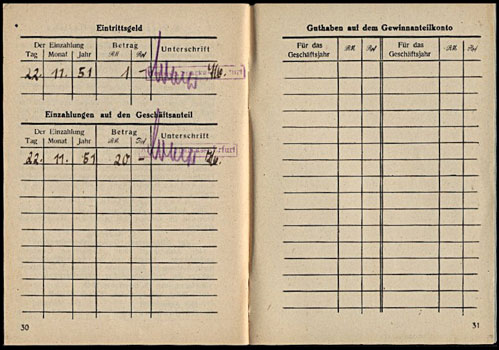 Eintrittsgeld
Der Einzahlung Betrag Unterschrift
Tag Monat Jahr RM. Rpf
22. 11. 51 1 -
Einzahlungen auf den Geschäftsanteil
Der Einzahlung Betrag Unterschrift
Tag Monat Jahr RM. Rpf
22. 11. 51 20 -
30
Guthaben auf dem Gewinnanteilkonto
Für das Geschäftsjahr RM. Rpf Für das Geschäftsjahr RM. Rpf
31